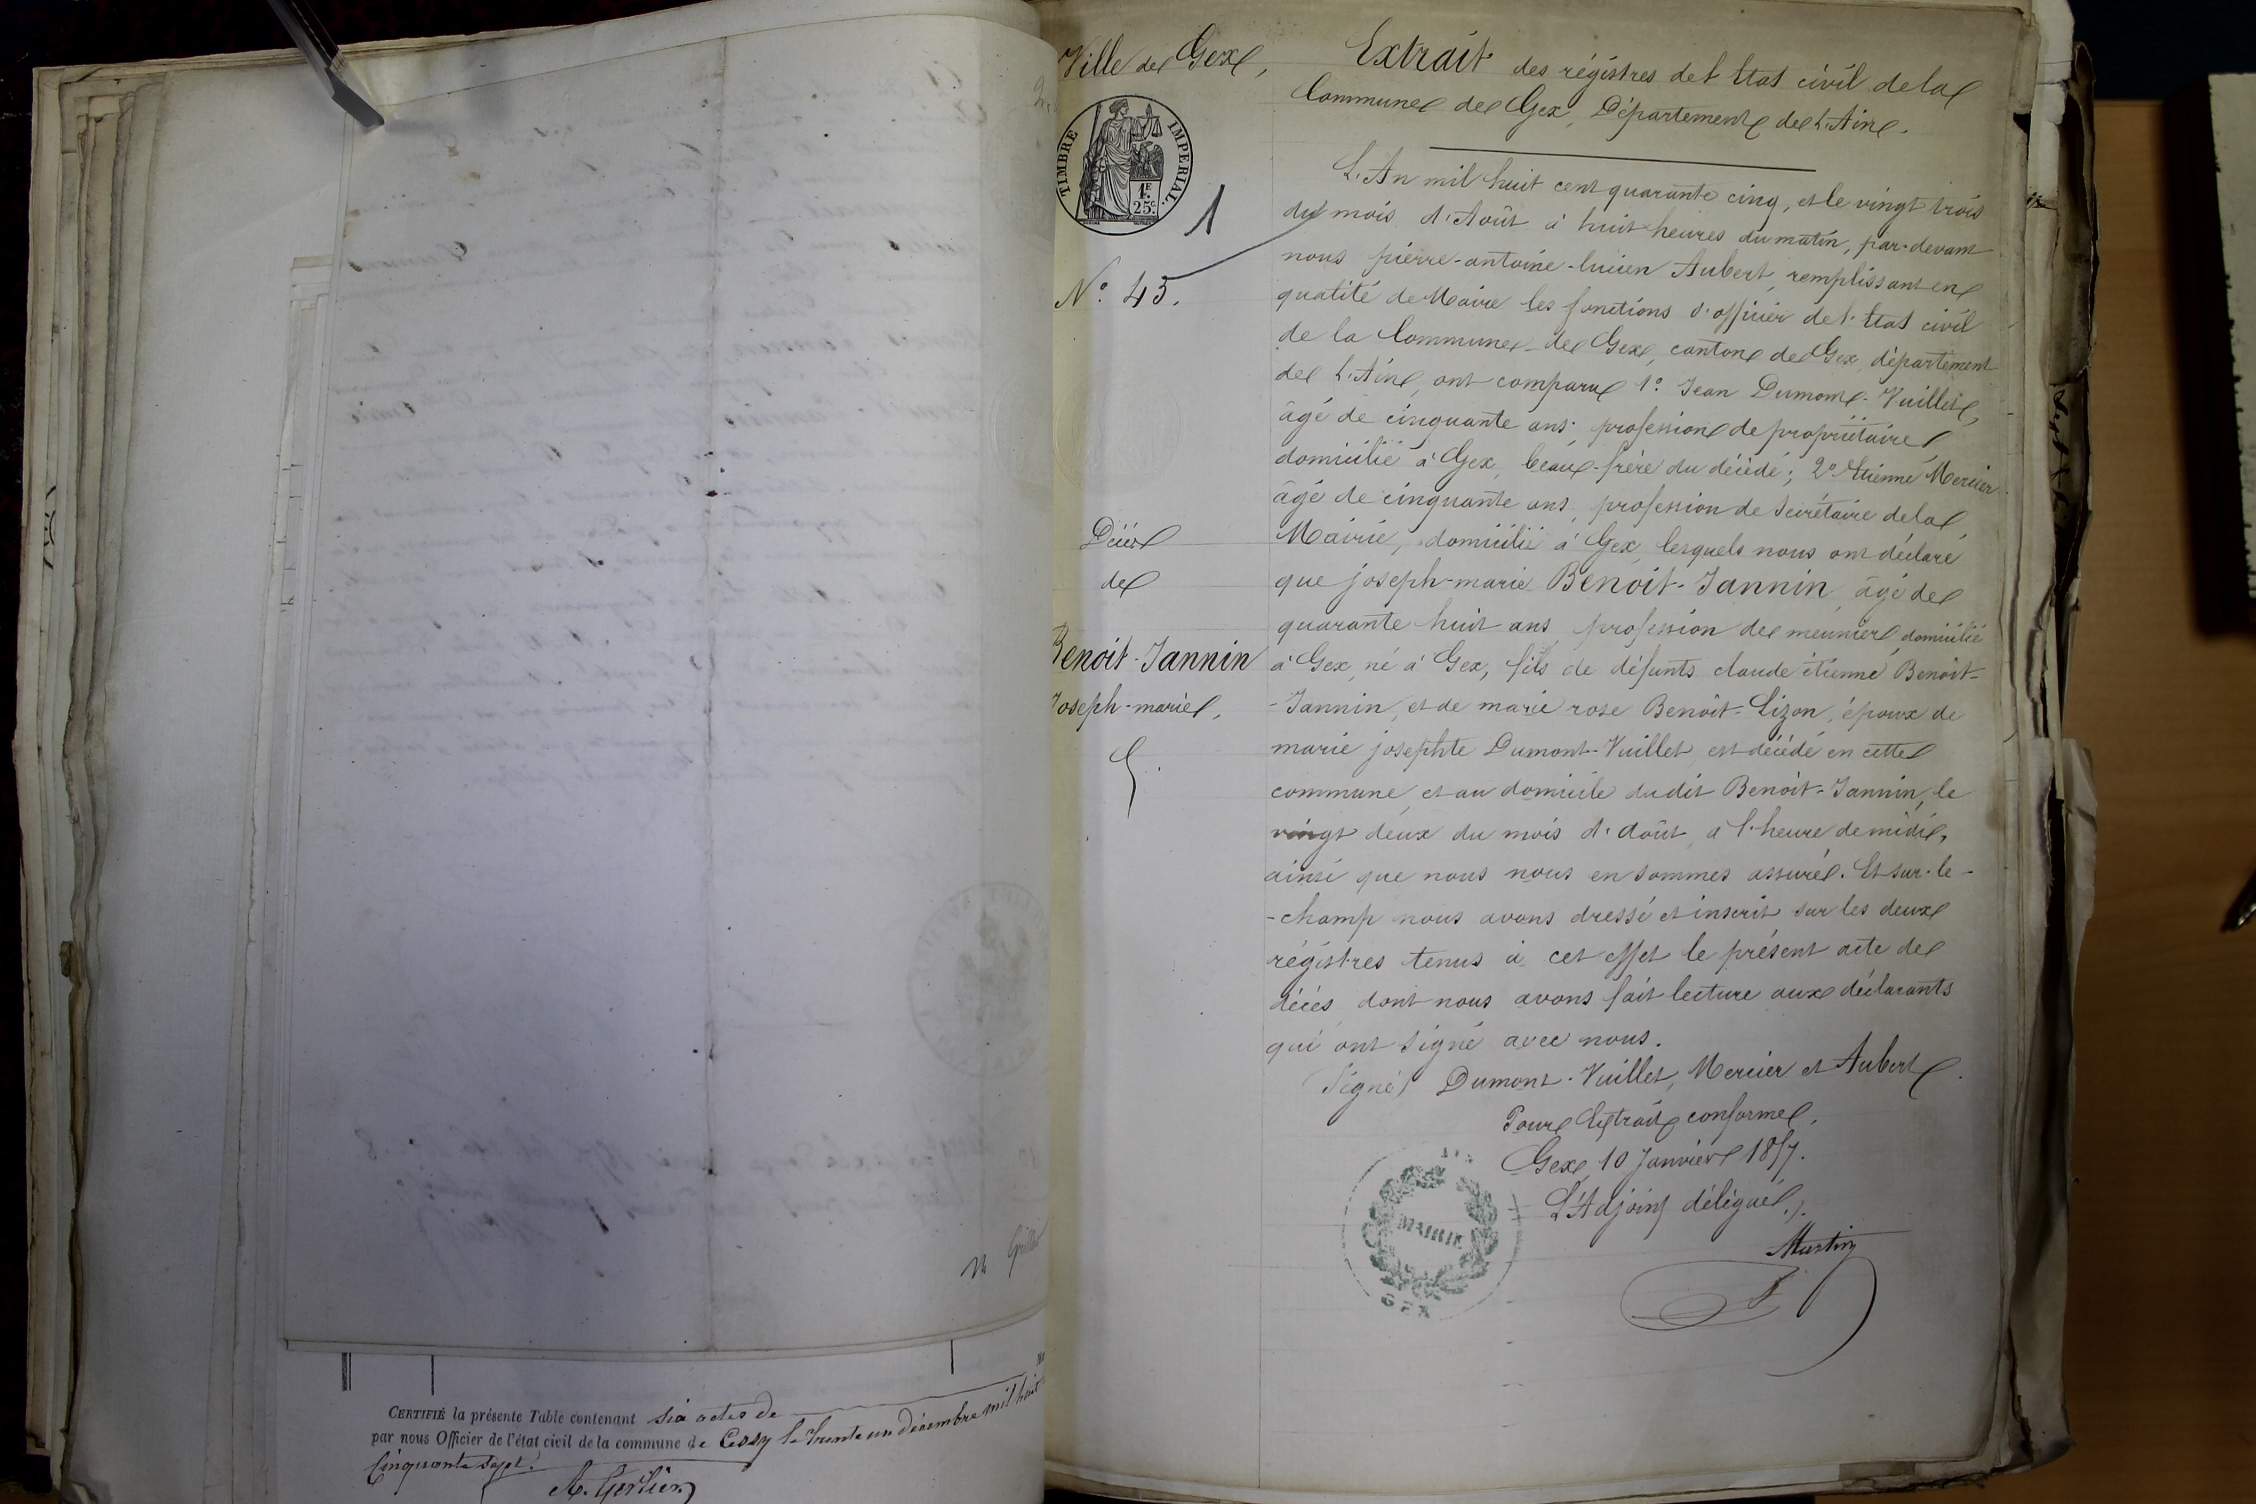 CERTIFIÉ la présente Table contenant six actes de
par nous Officier de l'état civil de la commune de Cessy le trente un décembre mil huit
cinquante sept.
Ville de Gex,
TIMBRE IMPERIAL.
1F.
25c.
1
N.° 45.
Décès
de
Benoit-Jannin
Joseph-marie,
Extrait des régistres de l'Etat civil de la
Commune de Gex, Département de l'Ain.
L'An mil huit cent quarante cinq, et le vingt trois
du mois d'Août à huit heures du matin, par-devant
nous pierre-antoine-lucien Aubert, remplissant en
qualité de Maire les fonctions d'officier de l'Etat civil
de la Commune de Gex, canton de Gex, département
de l'Ain, ont comparu 1.° Jean Dumont-Vuillet,
âgé de cinquante ans, profession de propriétaire,
domicilié à Gex, beau-frère du décédé; 2.° Etienne Mercier
âgé de cinquante ans, profession de Secrétaire de la
Mairie, domicilié à Gex, lesquels nous ont déclaré
que joseph-marie Benoit-Jannin, âgé de
quarante huit ans, profession de meunier, domicilié
à Gex, né à Gex, fils de défunts claude étienne Benoit-
-Jannin, et de marie rose Benoit-Lizon, époux de
marie josephte Dumont-Vuillet, est décédé en cette
commune, et au domicile du dit Benoit-Jannin, le
vingt deux du mois d'doût, à l'heure de midi,
ainsi que nous nous en sommes assuré. Et sur-le-
-champ nous avons dressé et inscrit sur les deux
régistres tenus à cet effet le présent acte de
décès dont nous avons fait lecture aux déclarants
qui ont signé avec nous.
Signé / Dumont-Vuillet, Mercier et Aubert.
Pour Extrait conforme,
Gex, 10 Janvier 1857.
L'Adjoint délégué,
Martin
MAIRIE
GEX